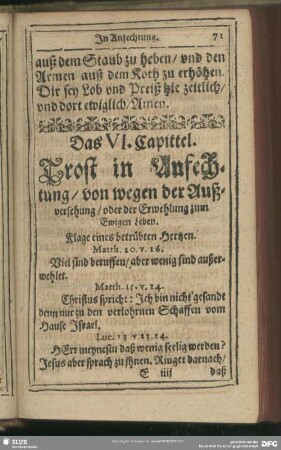 In Anfechtung. 71
auß dem Staub zu heben/ vnd den
Armen auß dem Koth zu erhöhen.
Dir sey Lob vnd Preiß hie zeitlich/
vnd dort ewiglich/ Amen.
Das VI. Capittel.
Trost in Anfech-
tung/ von wegen der Auß-
versehung/ oder der Erwehlung zum
Ewigen Leben.
Klage eines betrübten Hertzen.
Matth. 20. v. 16.
Viel sind beruffen/ aber wenig sind außer-
wehlet.
Matth. 15. v. 24.
Christus spricht: Ich bin nicht gesandt
denn nur zu den verlohrnen Schaffen vom
Hause Israel.
Luc. 13 v 23.24.
HErr meynestu daß wenig seelig werden?
Jesus aber sprach zu jhnen. Ringet darnach/
E iiij daß
SLUB
DFG